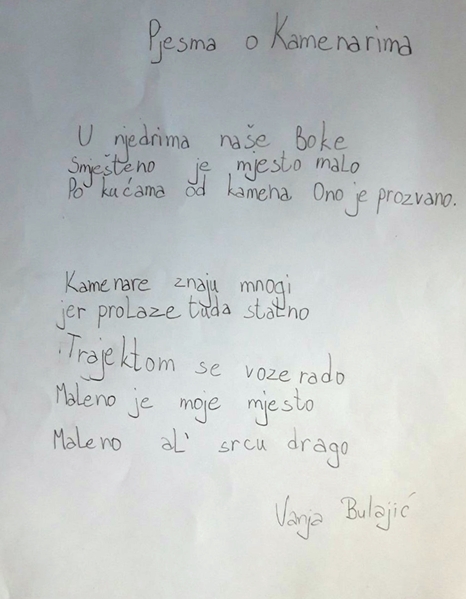 Pjesma o Kamenarima
U njedrima naše Boke
Smješteno je mjesto malo
Po kućama od kamena Ono je prozvano.
Kamenare znaju mnogi
jer prolaze tuda statno
Trajektom se voze rado
Maleno je moje mjesto
Maleno al' srcu drago
Vanja Bulajić